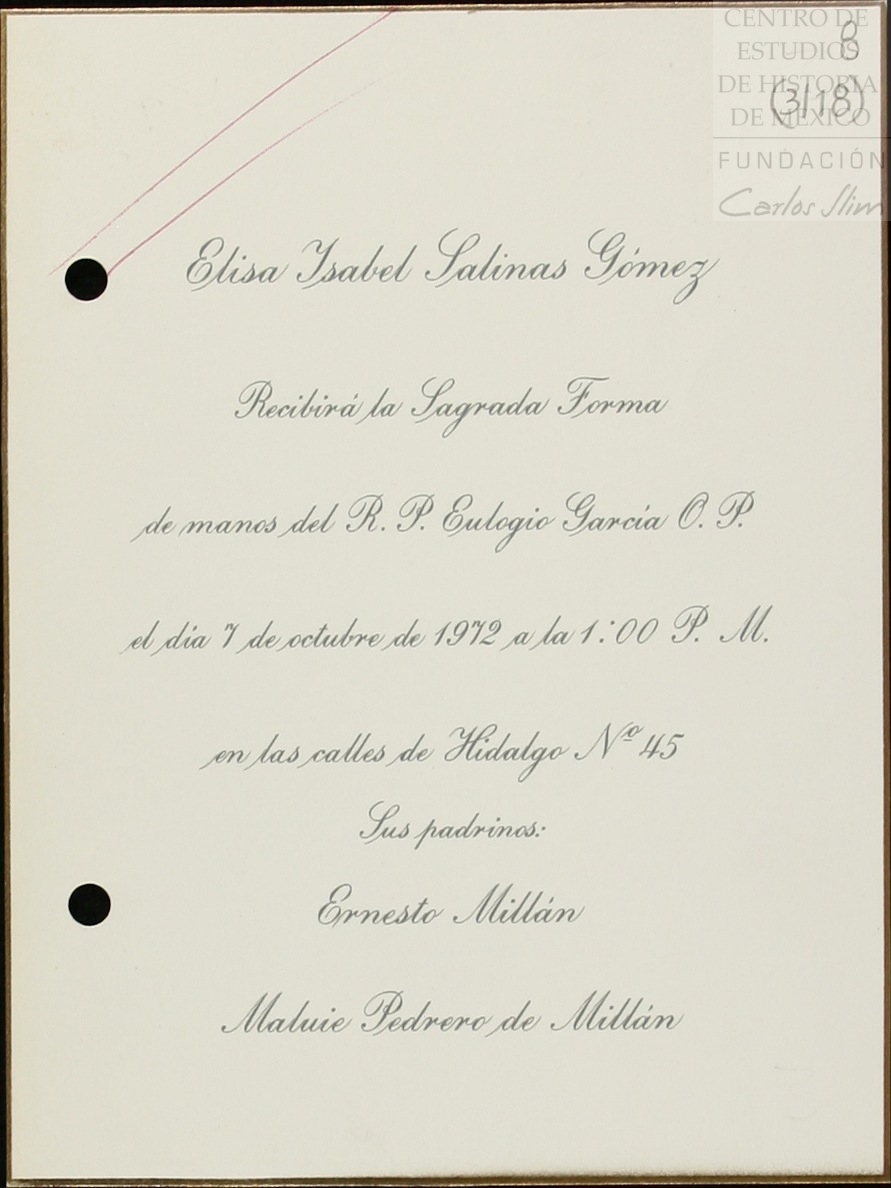 CENTRO DE
ESTUDIOS
DE HISTORIA
DE MÉXICO
FUNDACIÓN
Carlos Slim
8
(3/18)
Elisa Isabel Salinas Gómez
Recibirá la Sagrada Forma
de manos del R. P. Eulogio García O. P.
el día 7 de octubre de 1972 a la 1:00 P. M.
en las calles de Hidalgo Nº 45
Sus padrinos:
Ernesto Millán
Maluie Pedrero de Millán